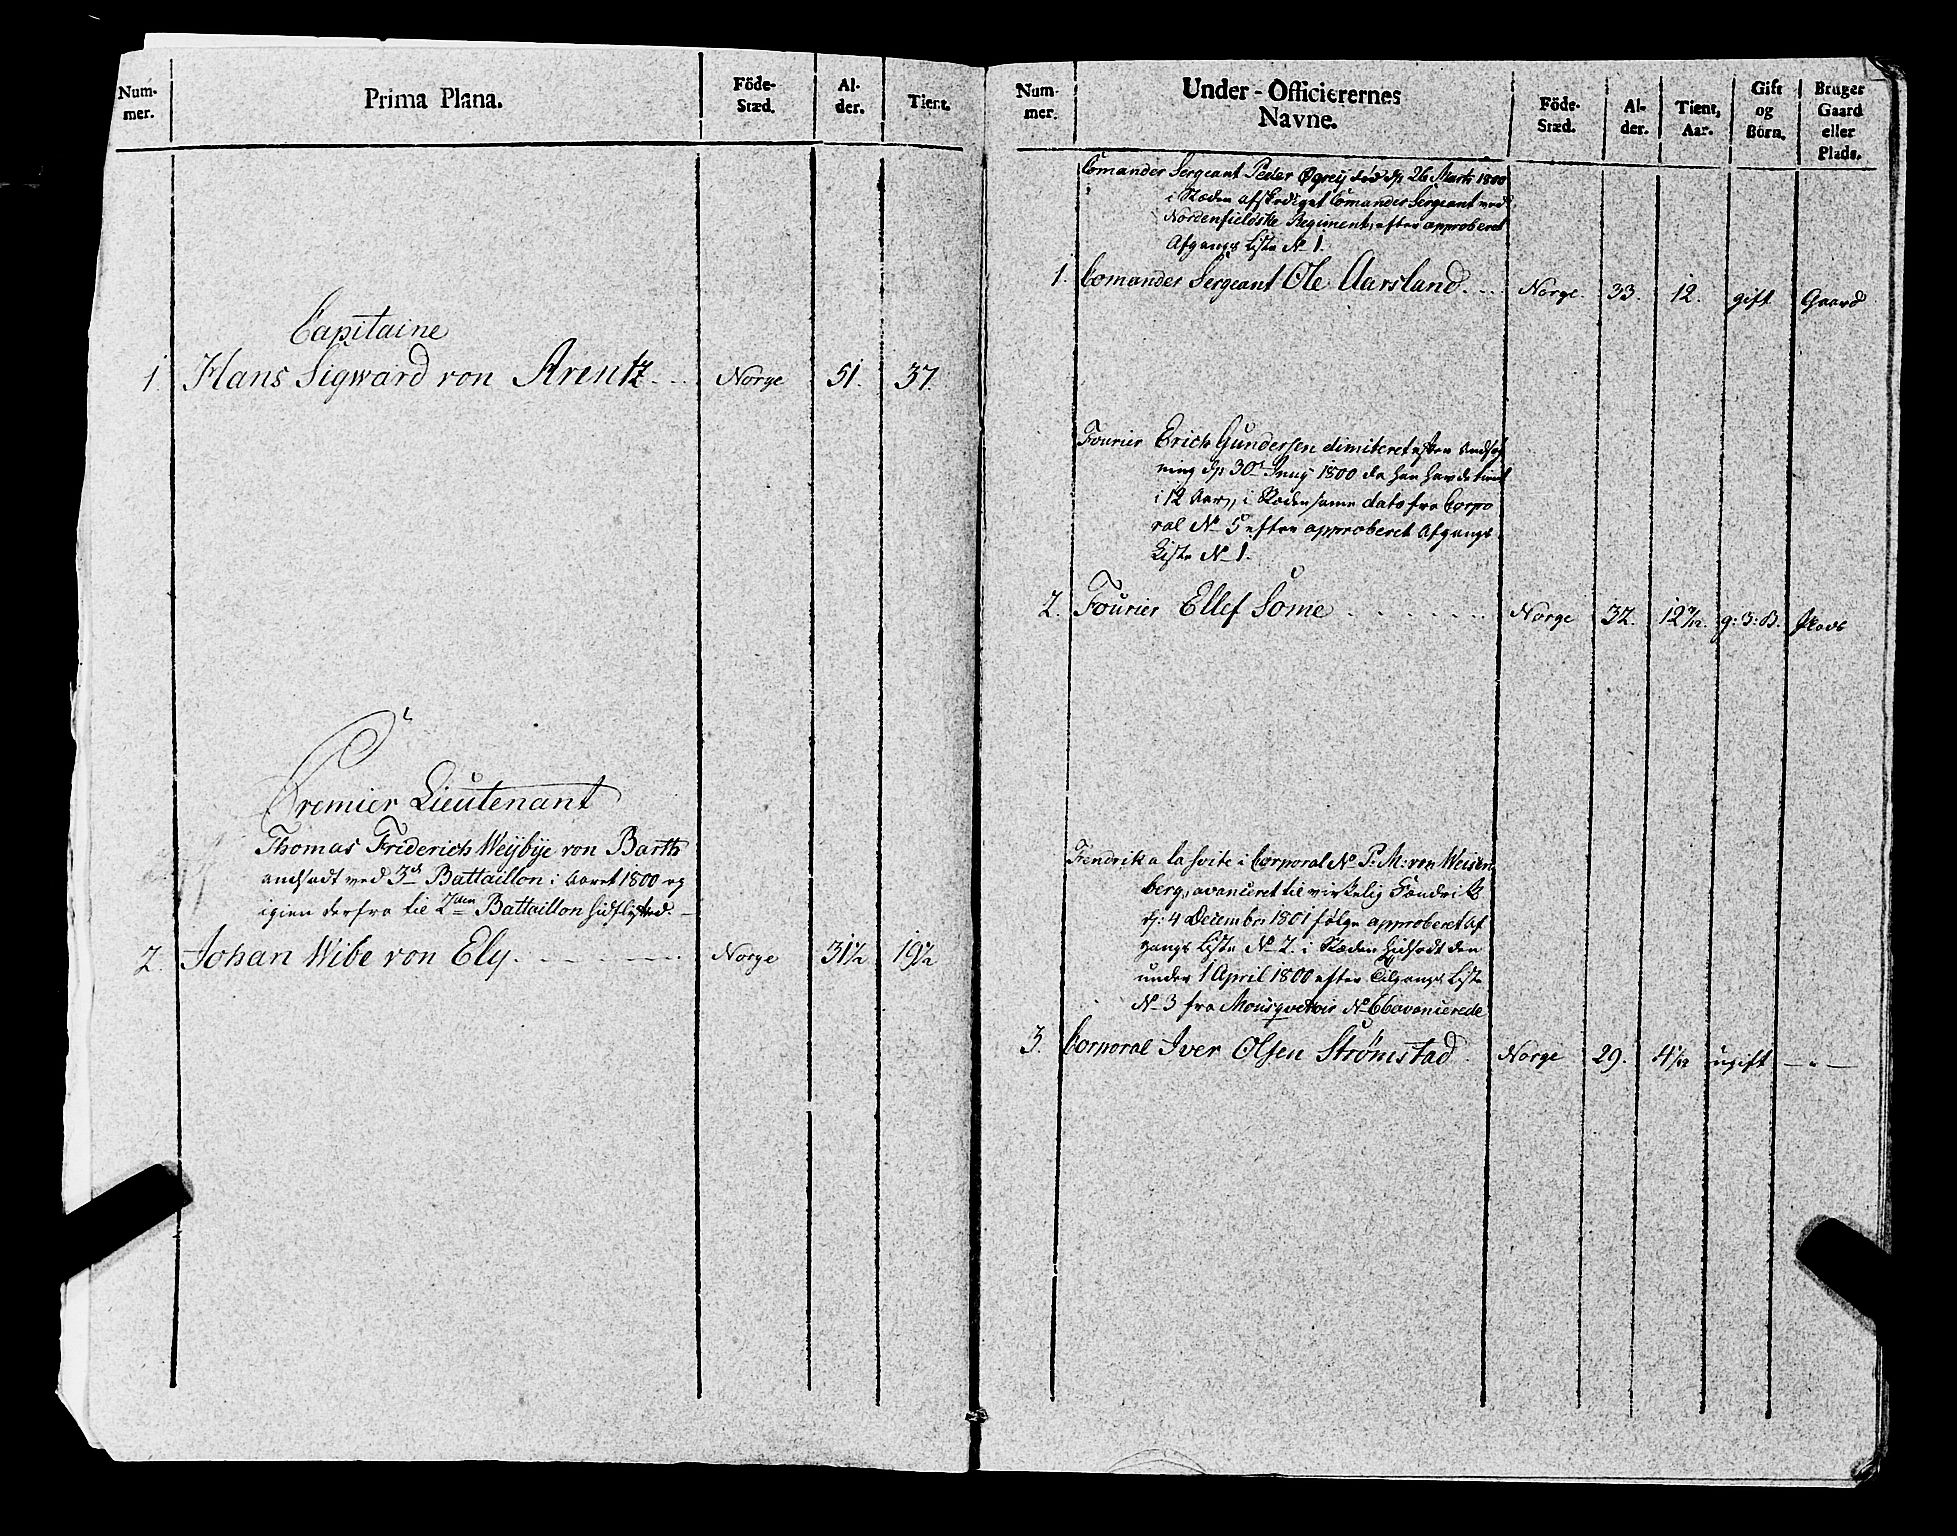 Num-
mer.
Prima Plana.
Föde-
Stæd.
Al-
der.
Tient.
Capitaine
1. Hans Sigward von Arentz Norge 51. 37.
Premier Lieutenant
Thomas Friderich Weybye von Barth
andsadt ved 3de Battaillon i Aaret 1800 og
igien derfra til 2den Battaillon hidflytted.
2. Johan Wibe von Ely. Norge 31½ 19½
Num-
mer.
Under-Officierernes
Navne.
Föde-
Stæd.
Al-
der.
Tient,
Aar.
Gift
og
Börn.
Bruger
Gaard
eller
Plads.
Comander Sergeant Peder død d: 26 Marts 1800
i Stæden afskediget Comander Sergeant ved
Nordenfieldske Regiment, efter approberet
Afgangs Liste No 1.
1. Comander Sergeant Ole Aarsland Norge. 33. 12. gift Gaard
Fourier Erich Gundersen dimiteret efter Ansøg
ning d: 30te Juny 1800 da han havde tient
i 12 Aar, i Stæden samme dato fra Corpo
ral No 5 efter approberet Afgangs
Liste No 1.
2. Fourier Ellef Some Norge 32. 12 g: 3: B. Plads
Fendrik a la Svite i Corporal No P: M: von Weisen
berg, avanceret til virkelig Fændrik
d: 4 Decembr 1801 følge approberet Af
gangs Liste No 2. i Stæden hidsadt den
under 1 April 1800 efter Tilgangs Liste
No 3 fra Mousqveteir No 66 avancerede
3. Corporal Iver Olsen Strømstad Norge 29. ugift